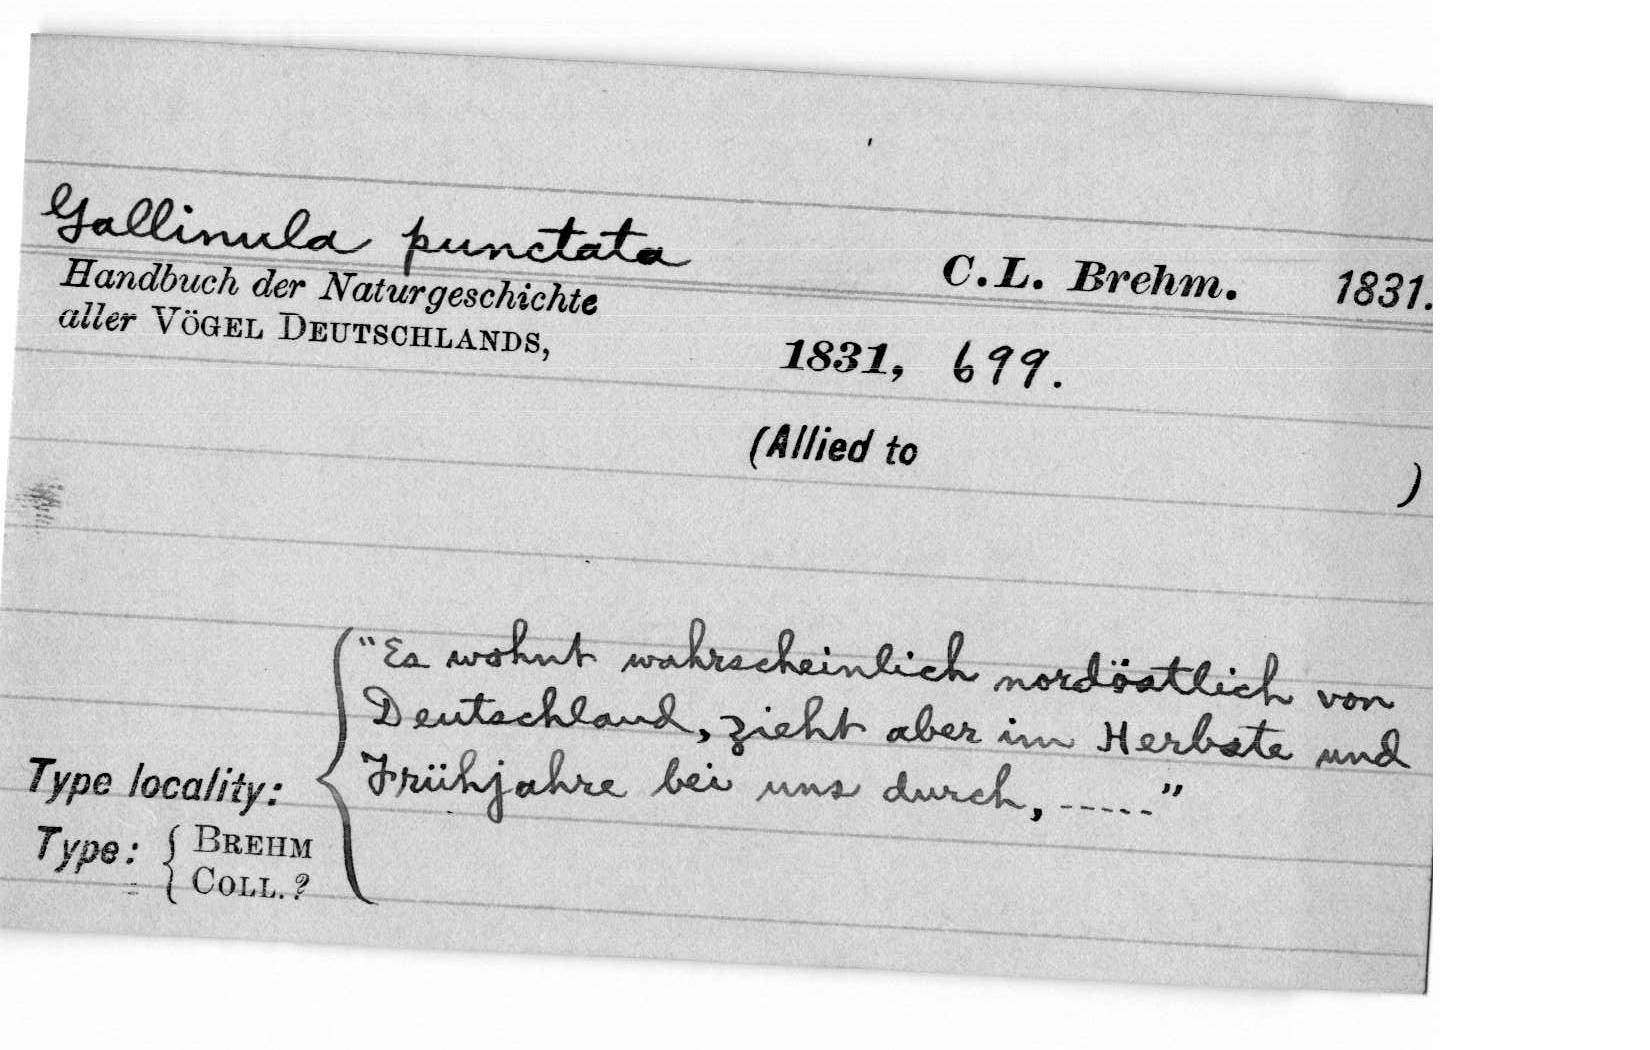 Gallinula punctata C.L. Brehm. 1831.
Handbuch der Naturgeschichte
aller VÖGEL DEUTSCHLANDS, 1831, 699.
(Allied to )
"Es wohnt wahrscheinlich nordöstlich von
Deutschland, zieht aber im Herbste und
Type locality: Frühjahre bei uns durch, -----"
Type: { BREHM
COLL. ?